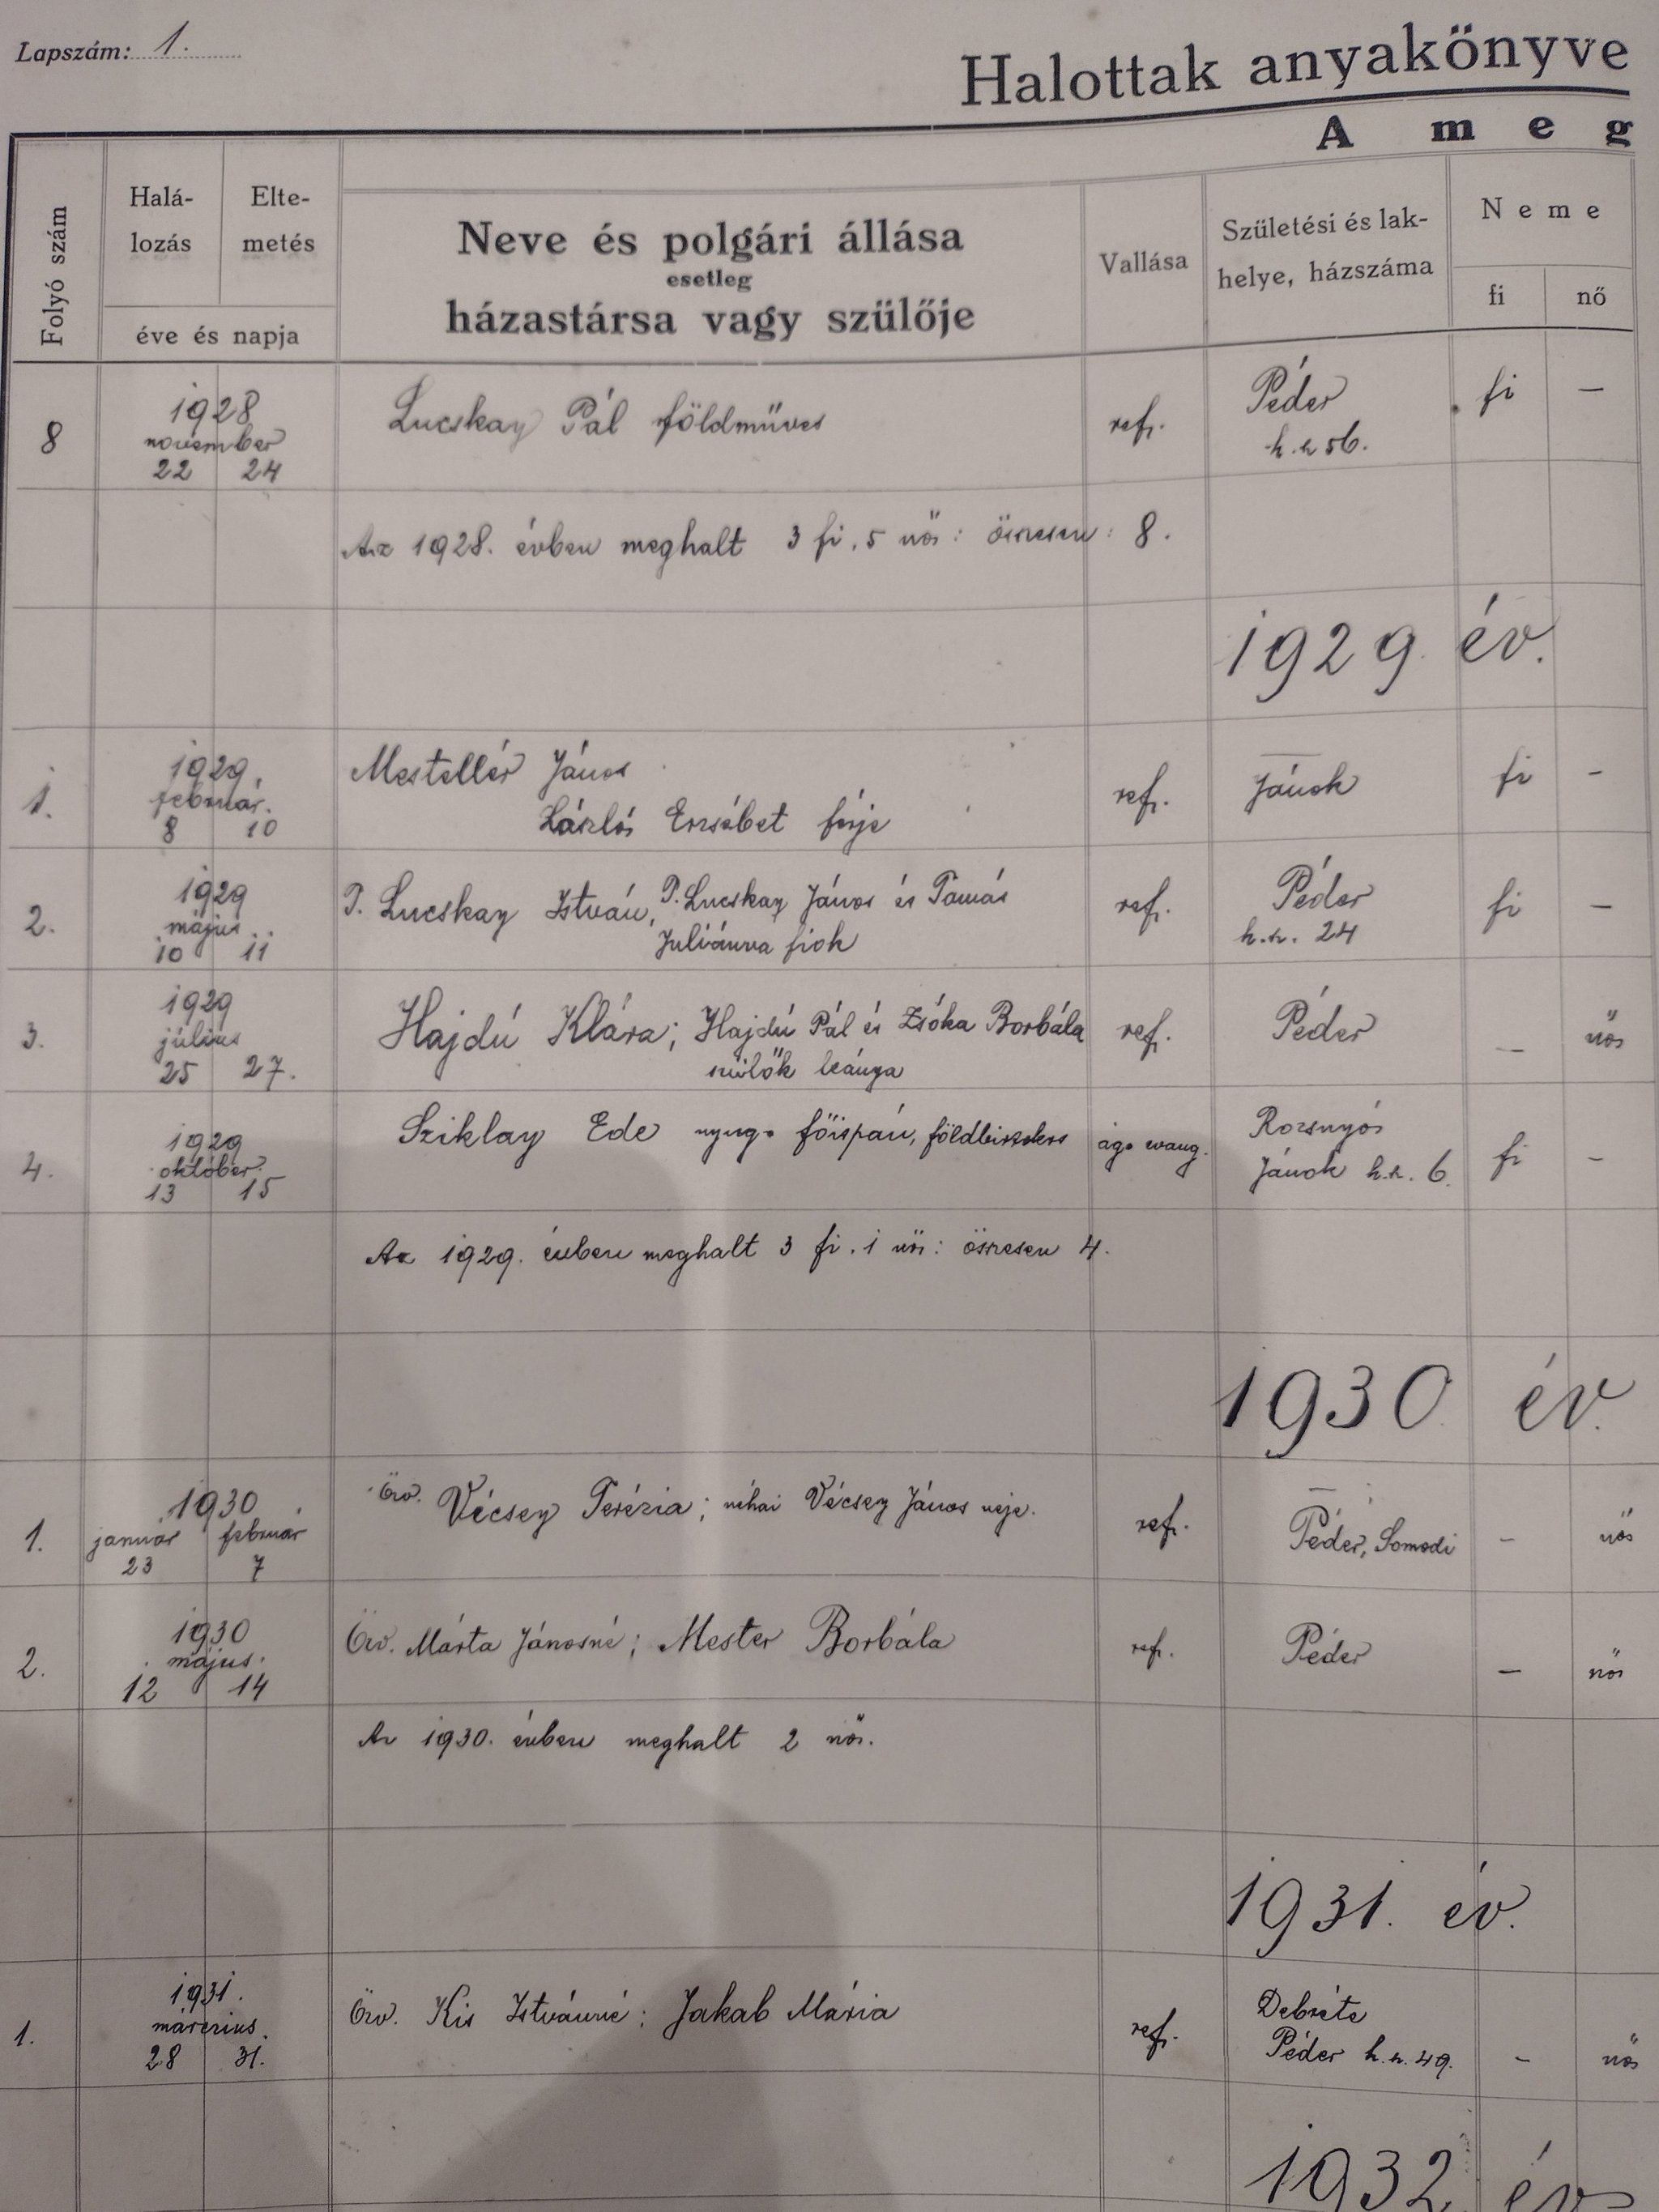 Lapszám: 1.
Halottak anyakönyve
A meg
Folyó szám
Halá-
lozás
Elte-
metés
éve és napja
Neve és polgári állása
esetleg
házastársa vagy szülője
Vallása
Születési és lak-
helye, házszáma
Neme
fi
nő
8
1928
november
22 24
Lucskay Pál földműves
ref.
Péder
h.sz 56.
fi
—
Az 1928. évben meghalt 3 fi, 5 nő: összesen: 8.
1929 év.
1.
1929.
február.
8 10
Mestellér János
László Erzsébet férje
ref.
Jánok
fi
-
2.
1929
május
10 11
T. Lucskay István, T. Lucskay János és Tamás
Juliánna fiok
ref.
Péder
h.sz. 24
fi
—
3.
1929
július
25 27.
Hajdú Klára; Hajdú Pál és Zsóka Borbála
szülők leánya
ref.
Péder
—
nő
4.
1929
október
13 15
Sziklay Ede nyug. főispán, földbirtokos
ág. evang.
Rozsnyó
Jánok h.sz. 6.
fi
-
Az 1929. évben meghalt 3 fi. 1 nő: összesen 4.
1930 év.
1.
1930
január február
23 7
Özv. Vécsey Terézia; néhai Vécsey János neje.
ref.
Péder, Somodi
-
nő
2.
1930
május.
12 14
Özv. Márta Jánosné; Mester Borbála
ref.
Péder
—
nő
Az 1930. évben meghalt 2 nő.
1931. év.
1.
1931.
március.
28 31.
Özv. Kis Istvánné: Jakab Mária
ref.
Debréte
Péder h.sz. 49.
-
nő
1932 év